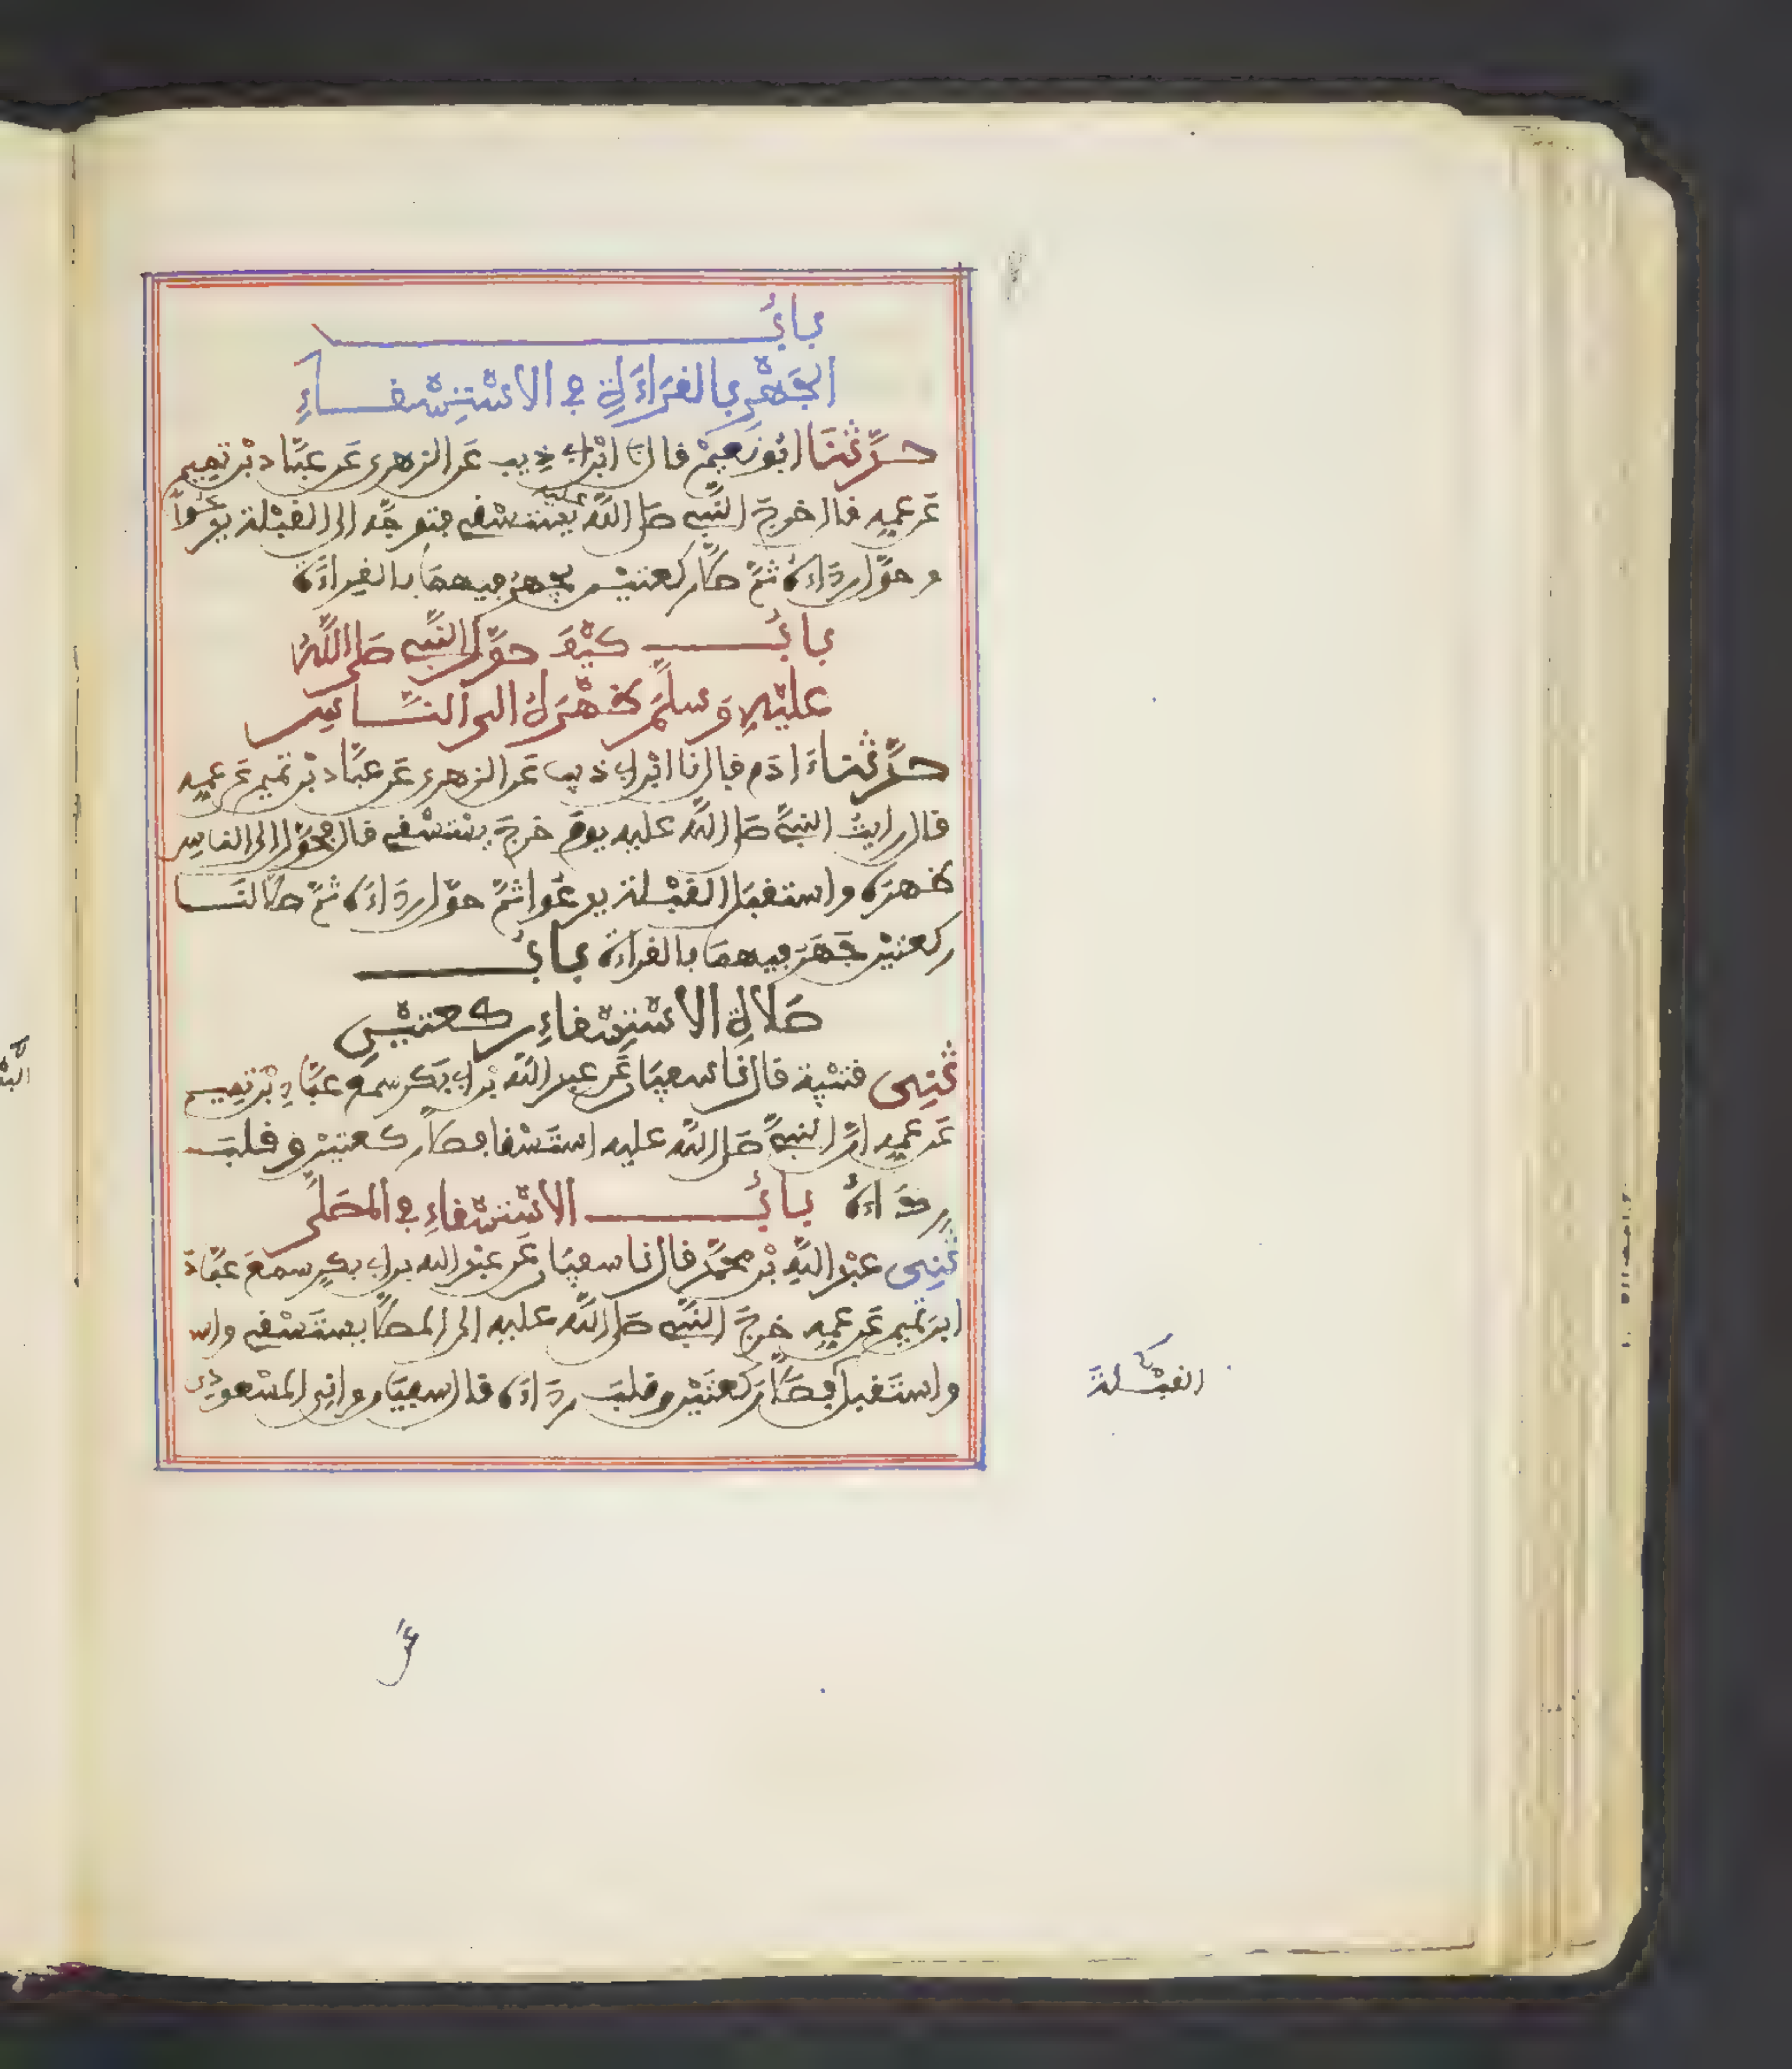 بابُ
الجَهْرِ بالقرَاءَةِ في الاسْتِسْقاءِ
حدَّثنَا ابُو نعيمْ قال نا ابْن ابي ذيب عَن الزهري عَن عبَّاد بْن تميم
عَن عميه قال خرجَ النَّبي صلى اللَّه عليه يستسْقي فتوجَّه الى القبْلة يدعُوا
وحوَّل ردَاءَهُ ثمَّ صلَّى ركعتيْن يجهرُ فيهمَا بالقراءَة
بابُ كيْفَ حوَّل النَّبي صَلى اللَّهُ
عليْهِ وَسلَّمَ ظهْرَهُ الى النَّاسِ
حدَّثنا ءَادَم قال نا ابْن ابي ذيب عَن الزهري عَن عبَّاد بْن تميم عَن عميه
قال رايتُ النبيَّ صلى اللَّه عليه يومَ خرجَ يستسْقي قال فحوَّل الى الناس
ظهرَه واستقبَل القبْلة يدعُوا ثمَّ حوَّل ردَاءَه ثمَّ صلَّى لنَا
ركعتيْن جَهَرَ فيهمَا بالقراءَة بابُ
صَلاةِ الاسْتِسْقاءِ ركعتيْنِ
ثنِي قتيْبة قال نا سعيَان عَن عبد اللَّه بْن ابي بَكر سمعَ عبَّادِ بْن تميم
عَن عميه انَّ النبيَّ صَلى اللَّه عليه استَسْقا فصلَّى ركعتيْن وقلبَ
ردَاءَهُ بابُ الاسْتسْقاءِ في المصَلَّى
ثنِي عبْد اللَّهِ بْن محمَّد قال نا سعيَان عَن عبْد الله بن ابي بكرٍ سمعَ عبَّادَ
ابن تميم عَن عميه خرجَ النَّبي صَلى اللَّه عليه الى المصلَّى يستَسْقي واس
واستَقبل القبْلةَ فصَلَّى رَكعَتَيْن وقلبَ ردَاءَه قال سعيَان وانِي المسْعودي
عَن